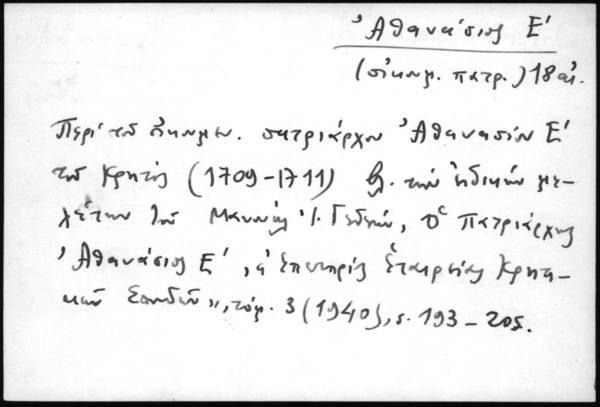 Ἀθανάσιος Ε'
(οἰκουμ. πατρ.) 18 αἰ.
Περὶ τοῦ οἰκουμεν. πατριάρχου Ἀθανασίου Ε'
τοῦ Κρητός (1709-1711) βλ. τὴν εἰδικὴν με-
λέτην τοῦ Μανουὴλ Ἰ. Γεδεών, Ὁ Πατριάρχης
Ἀθανάσιος Ε', «Ἐπετηρὶς Ἑταιρείας Κρητι-
κῶν Σπουδῶν», τόμ. 3 (1940), σ. 193-205.